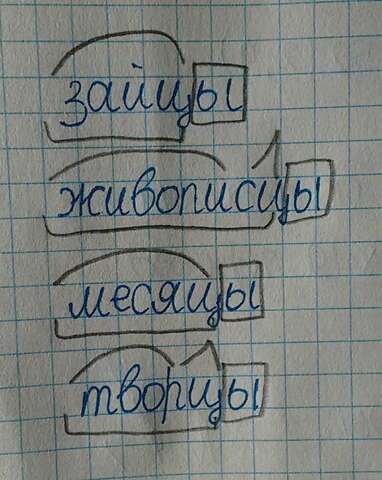 зайцы
живописцы
месяцы
творцы